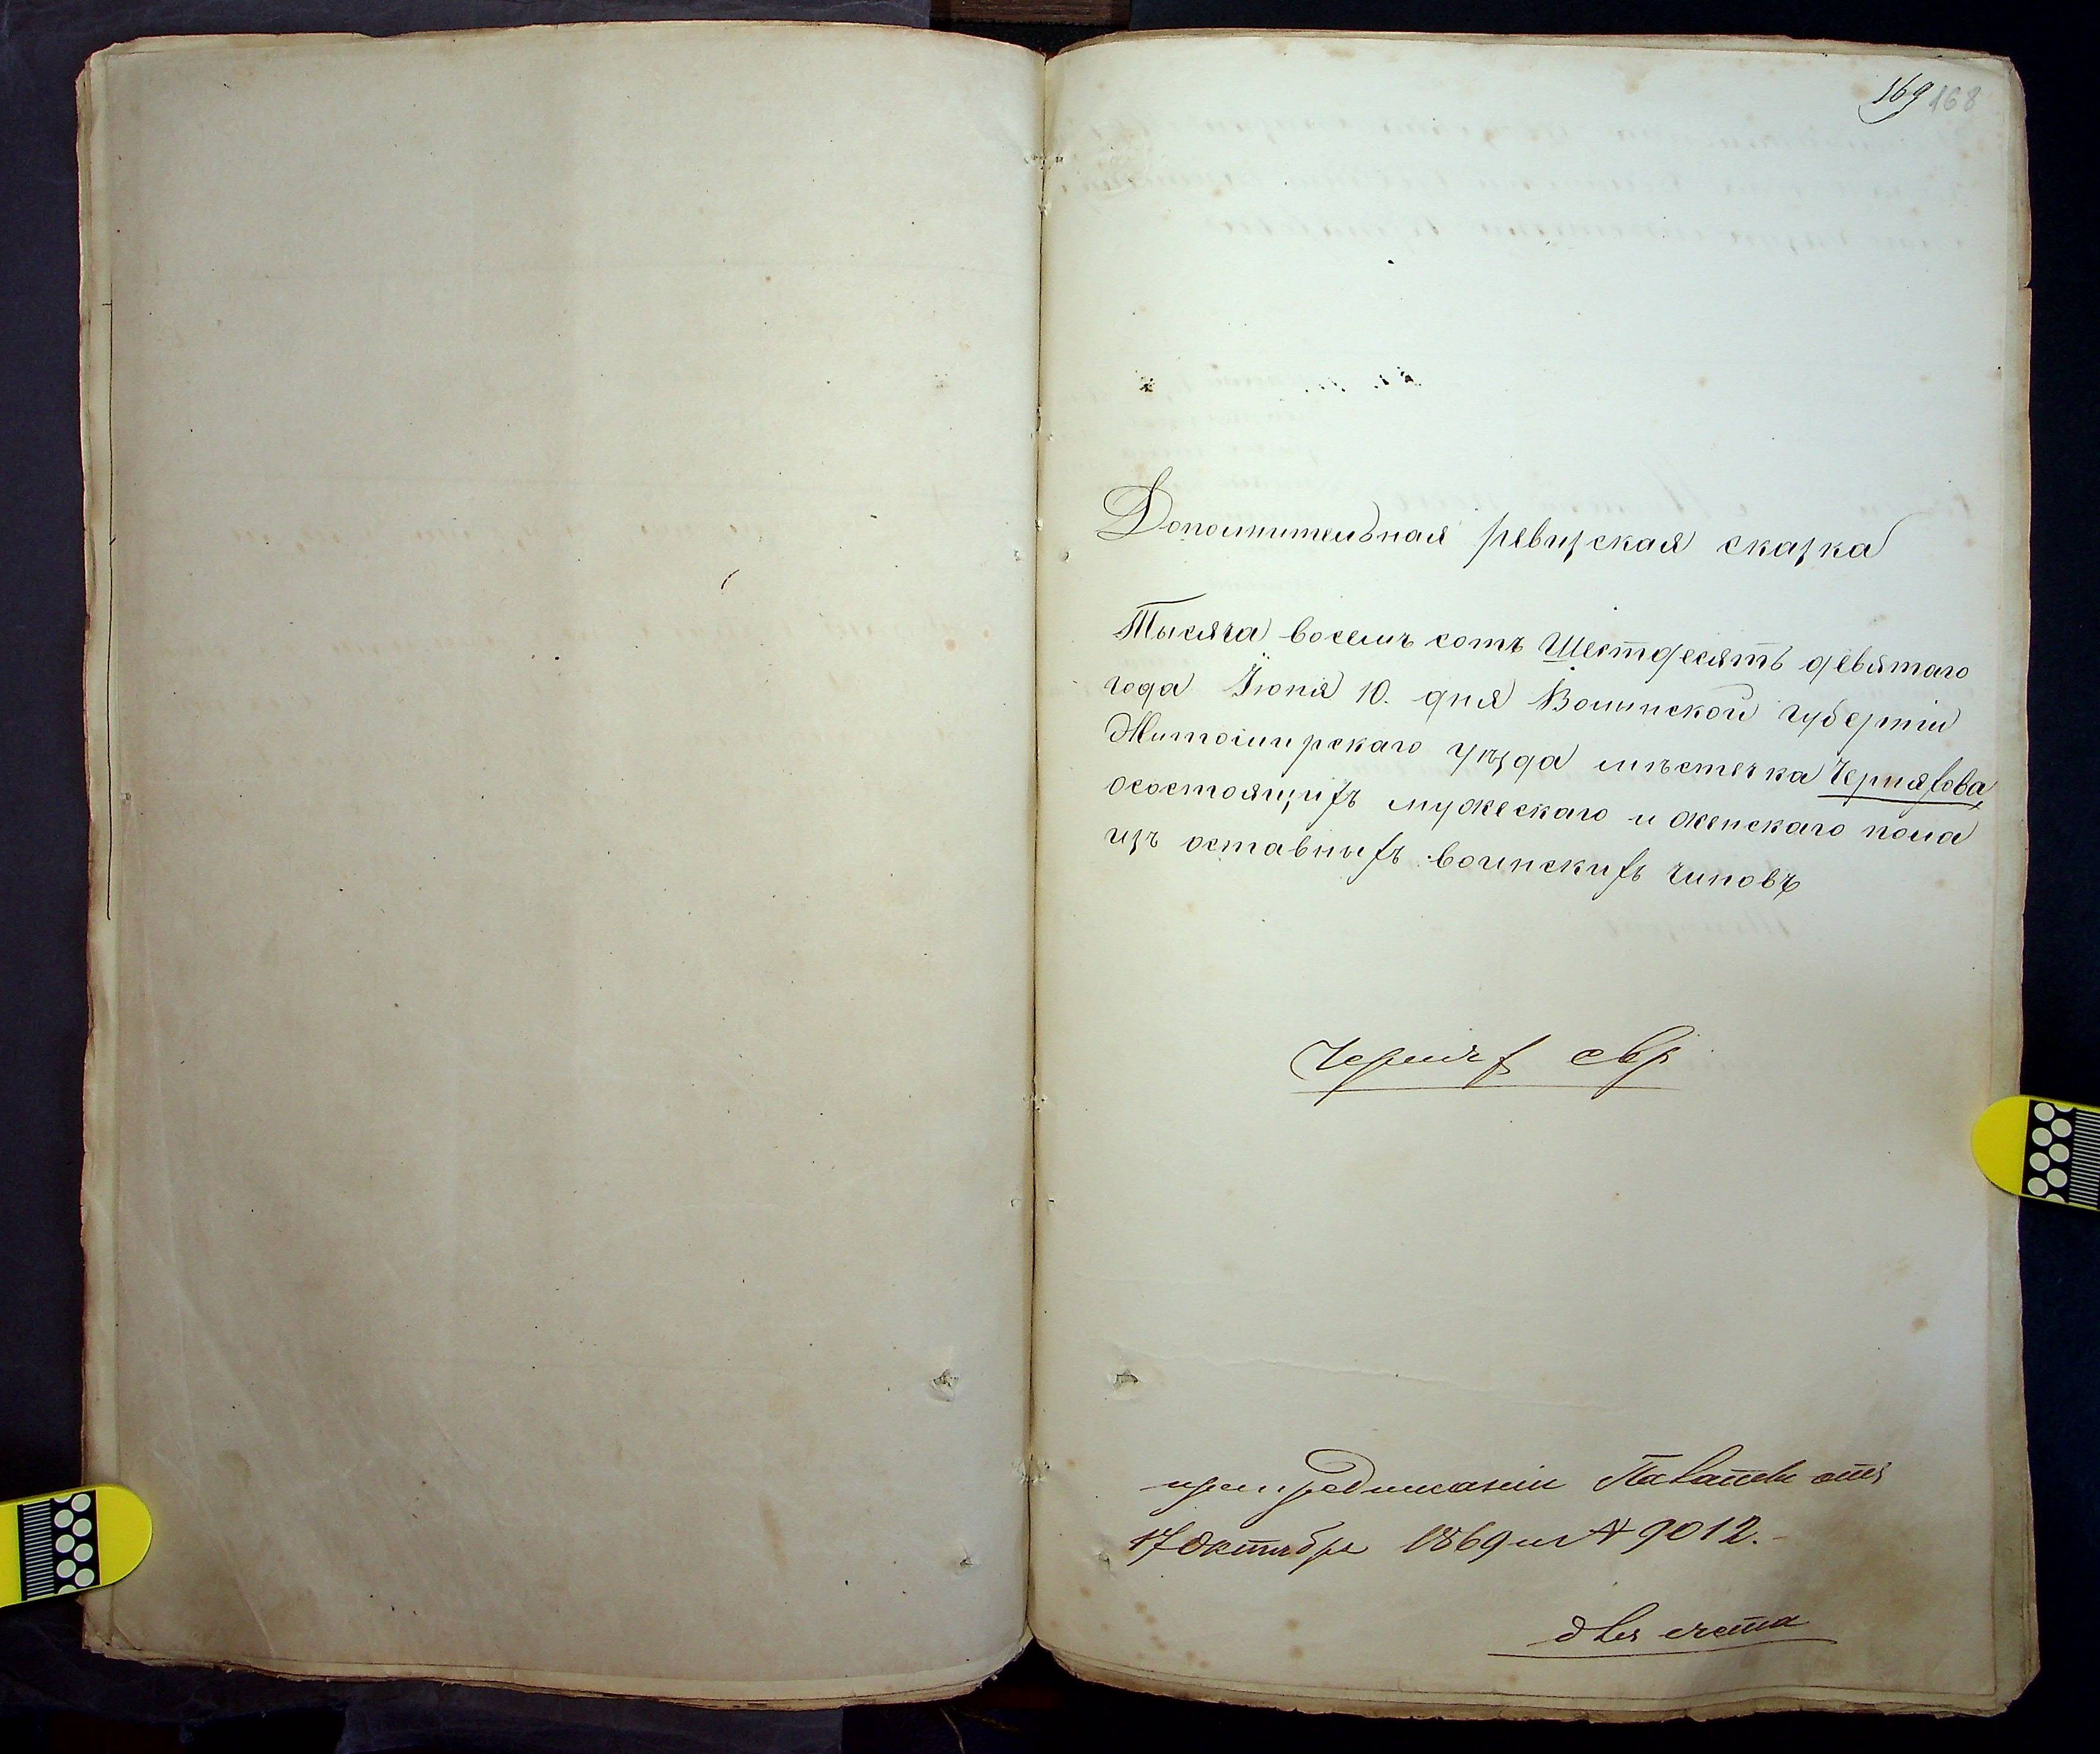 169 168
Дополнительная ревизская сказка
Тысяча восемъ сотъ Шестдесятъ девятаго
года Іюня 10. дня Волынской губерніи
Житомирскаго уѣзда мѣстечка Черняхова
осостоящихъ мужескаго и женскаго пола
изъ оставныхъ воинскихъ чиновъ
Чернях евр
при предписаніи Палаты отъ
17 Октября 1869 № 9012.
для счета